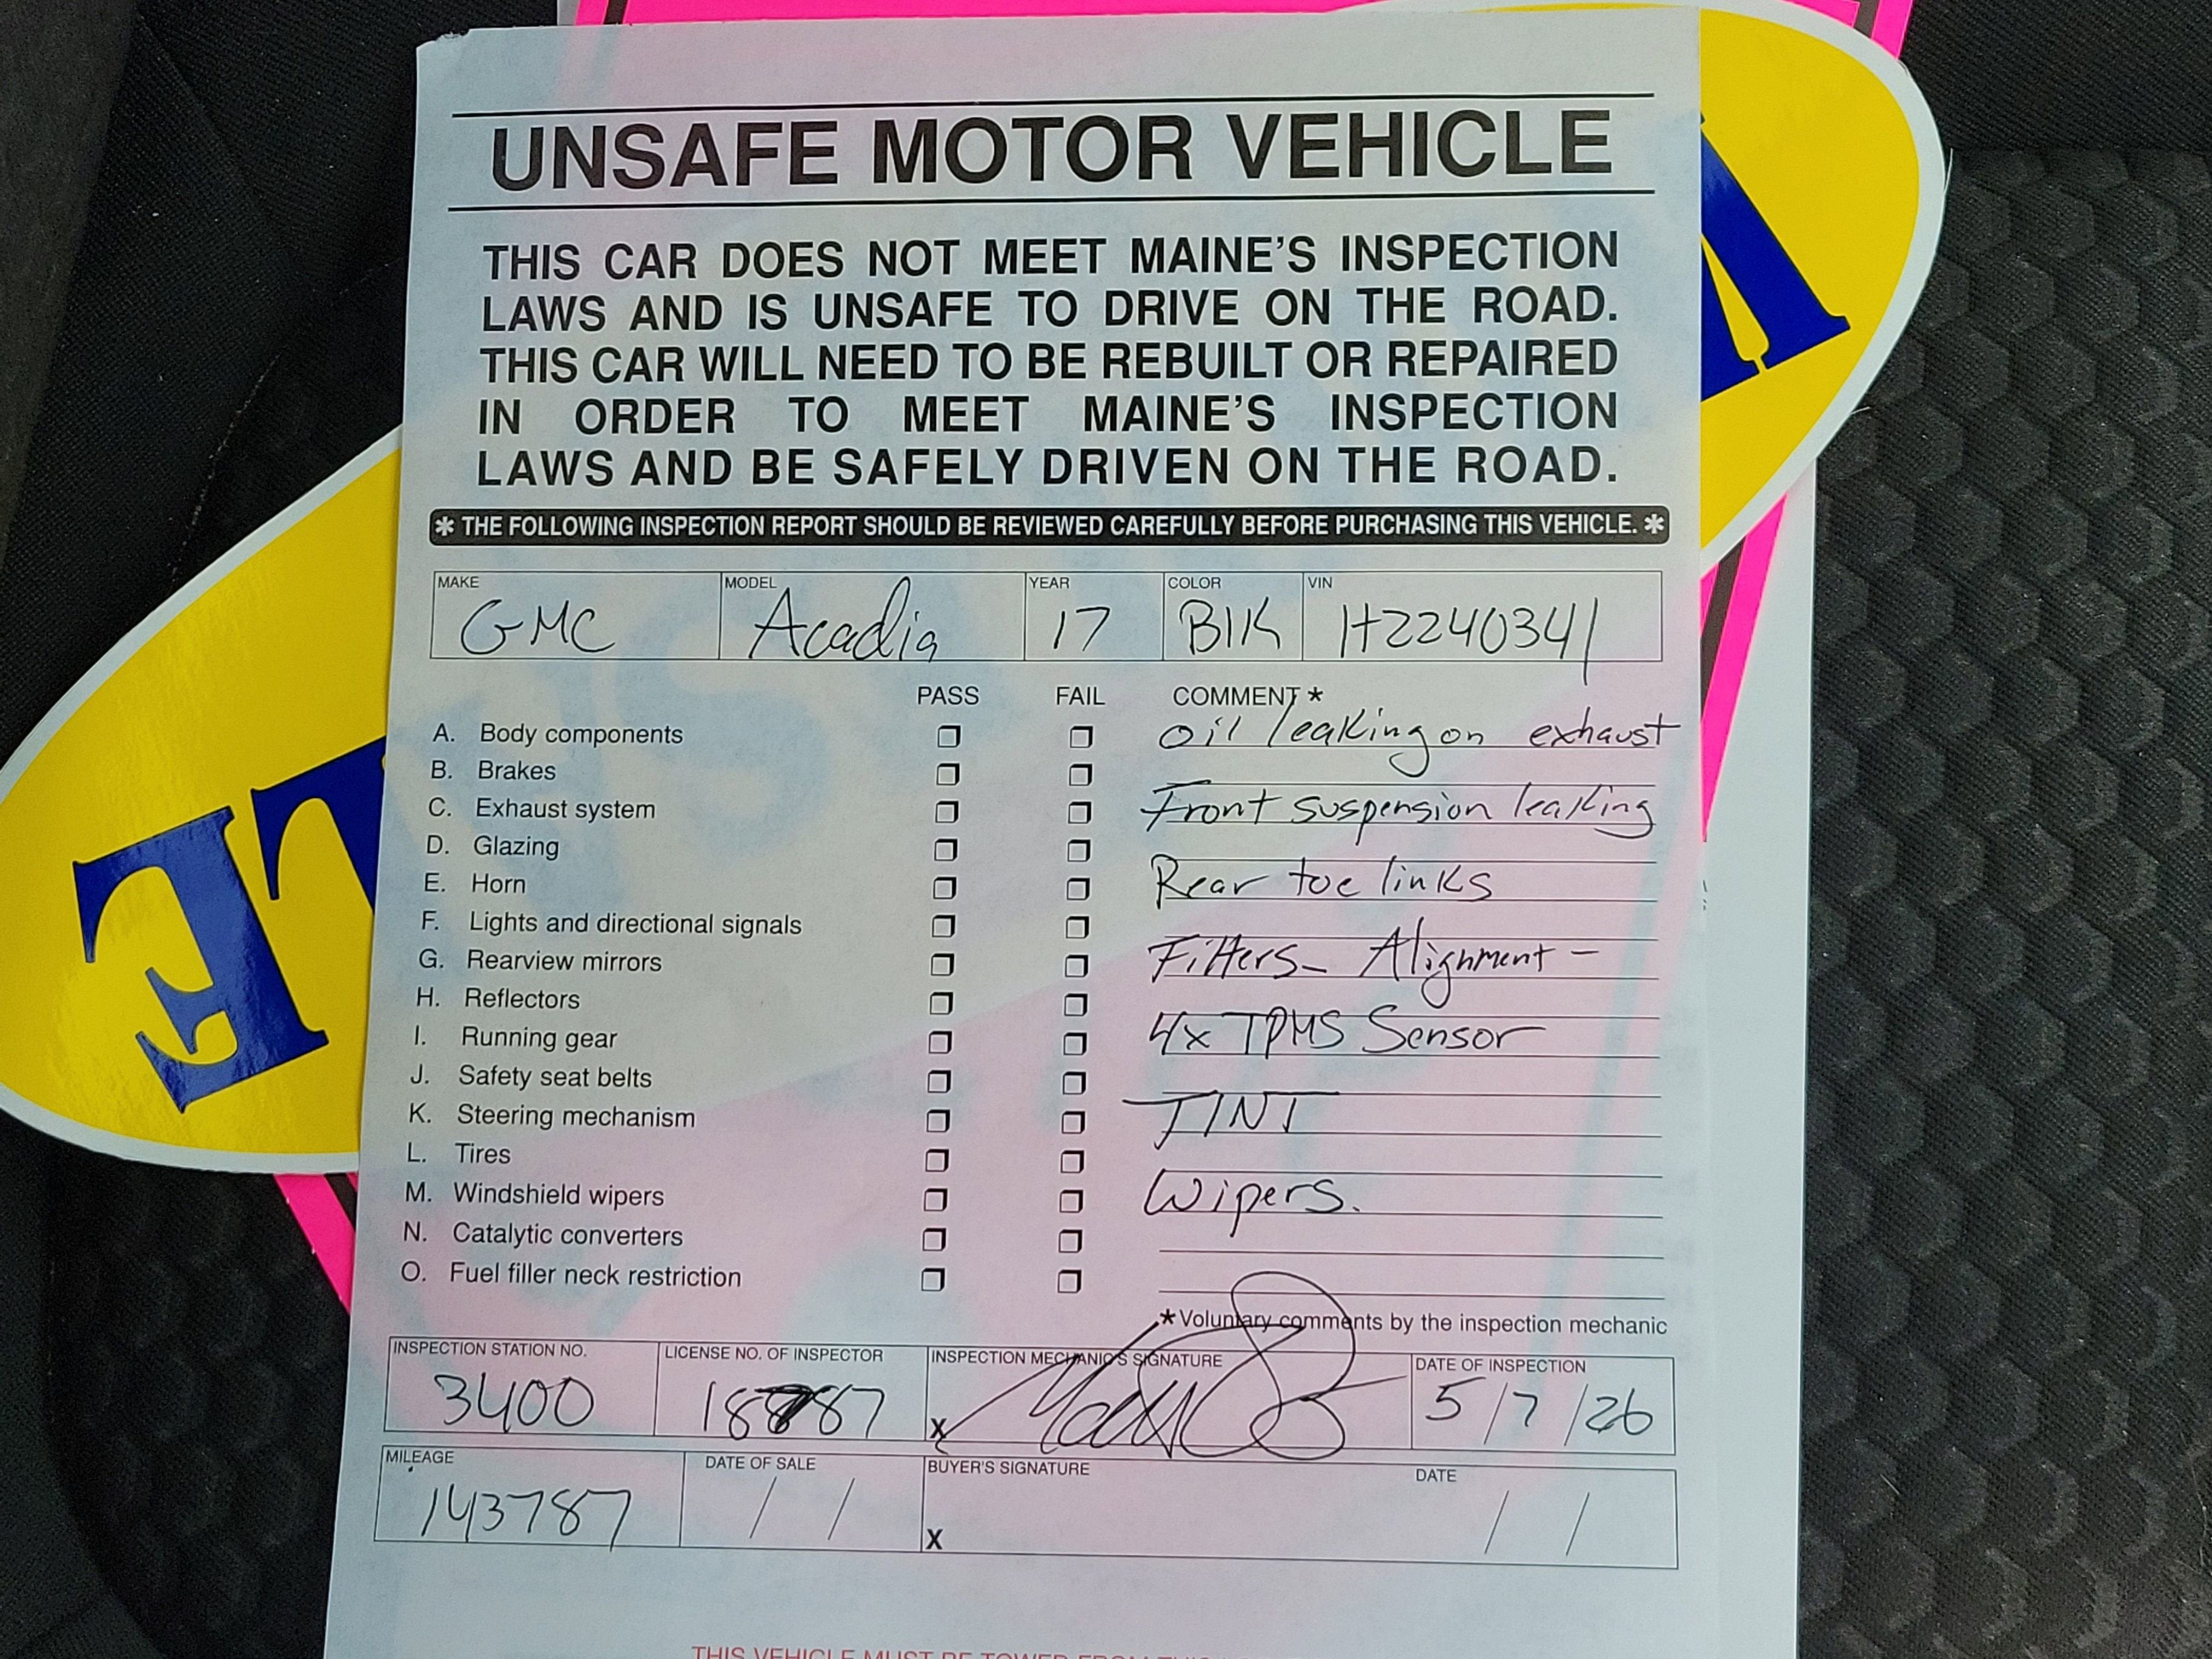 UNSAFE MOTOR VEHICLE
THIS CAR DOES NOT MEET MAINE'S INSPECTION
LAWS AND IS UNSAFE TO DRIVE ON THE ROAD.
THIS CAR WILL NEED TO BE REBUILT OR REPAIRED
IN ORDER TO MEET MAINE'S INSPECTION
LAWS AND BE SAFELY DRIVEN ON THE ROAD.
* THE FOLLOWING INSPECTION REPORT SHOULD BE REVIEWED CAREFULLY BEFORE PURCHASING THIS VEHICLE. *
MAKE MODEL YEAR COLOR VIN
GMC Acadia 17 Blk H2240341
PASS FAIL COMMENT *
A. Body components oil leaking on exhaust
B. Brakes
C. Exhaust system Front suspension leaking
D. Glazing
E. Horn Rear toe links
F. Lights and directional signals
G. Rearview mirrors Filters - Alignment -
H. Reflectors
I. Running gear 4x TPMS Sensor
J. Safety seat belts
K. Steering mechanism TINT
L. Tires
M. Windshield wipers Wipers.
N. Catalytic converters
O. Fuel filler neck restriction
* Voluntary comments by the inspection mechanic
INSPECTION STATION NO. LICENSE NO. OF INSPECTOR INSPECTION MECHANIC'S SIGNATURE DATE OF INSPECTION
3400 X 5/7/26
MILEAGE DATE OF SALE BUYER'S SIGNATURE DATE
143787 / / X / /
THIS VEHICLE MUST BE TOWED FROM